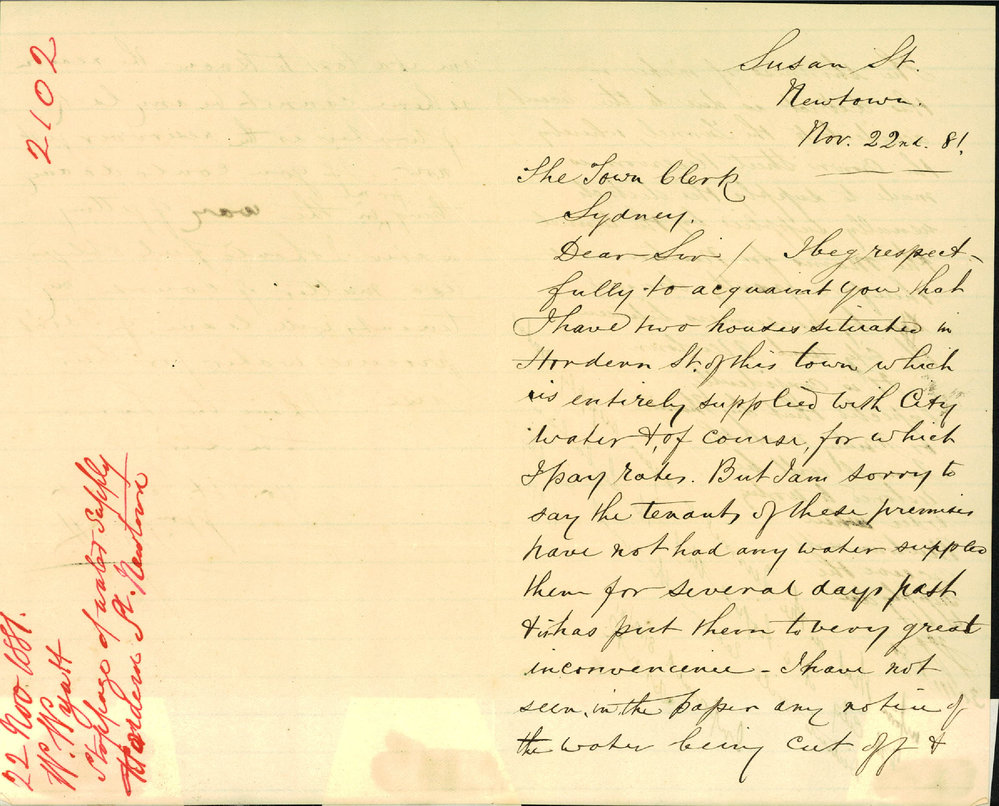 2102
22 Nov. 1881.
W. Wyatt
Stoppage of water supply
Hordern St. Newtown
Susan St.
Newtown.
Nov. 22nd. 81.
The Town Clerk
Sydney.
Dear Sir / I beg respect-
fully to acquaint you that
I have two houses situated in
Hordern St. of this town which
is entirely supplied with City
water & of course, for which
I pay rates. But I am sorry to
say the tenants of these premises
have not had any water supplied
them for several days past
& it has put them to very great
inconvenience - I have not
seen in the paper any notice of
the water being cut off &